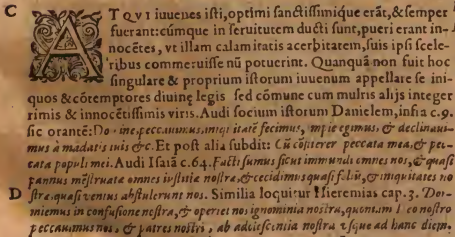 C
ATQVI iuuenes isti, optimi sanctissimique erāt, & semper
fuerant: cúmque in seruitutem ducti sunt, pueri erant in-
nocētes, vt illam calamitatis acerbitatem, suis ipsi scele-
ribus commeruisse nō potuerint. Quanquā non fuit hoc
singulare & proprium istorum iuuenum appellare se ini-
quos & cōtemptores diuinę legis sed cōmune cum multis alijs integer
rimis & innocētissimis viris. Audi socium istorum Danielem, infia c.9.
sic orantē: Do ine peccauimus, iniqi itatē fecimus, impie egimus, & declinaui-
mus à mādatis tuis &c. Et post alia subdit: Cū cōfiterer peccata mea, & pec-
cata populi mei. Audi Isaiā c. 64. Facti sumus sicut immundi omnes nos, & quasi
pannus mēstruatæ omnes iustitiæ nostræ, & cecidimus quasi foliū, & iniquitates no
D stræ quasi ventus abstulerunt nos. Similia loquitur Hieremias cap. 3. Dor-
miemus in confusione nostra, & operiet nos ignominia nostra, quoniam Deo nostro
peccauimus nos, & patres nostri, ab adolescentia nostra vsque ad hanc diem.